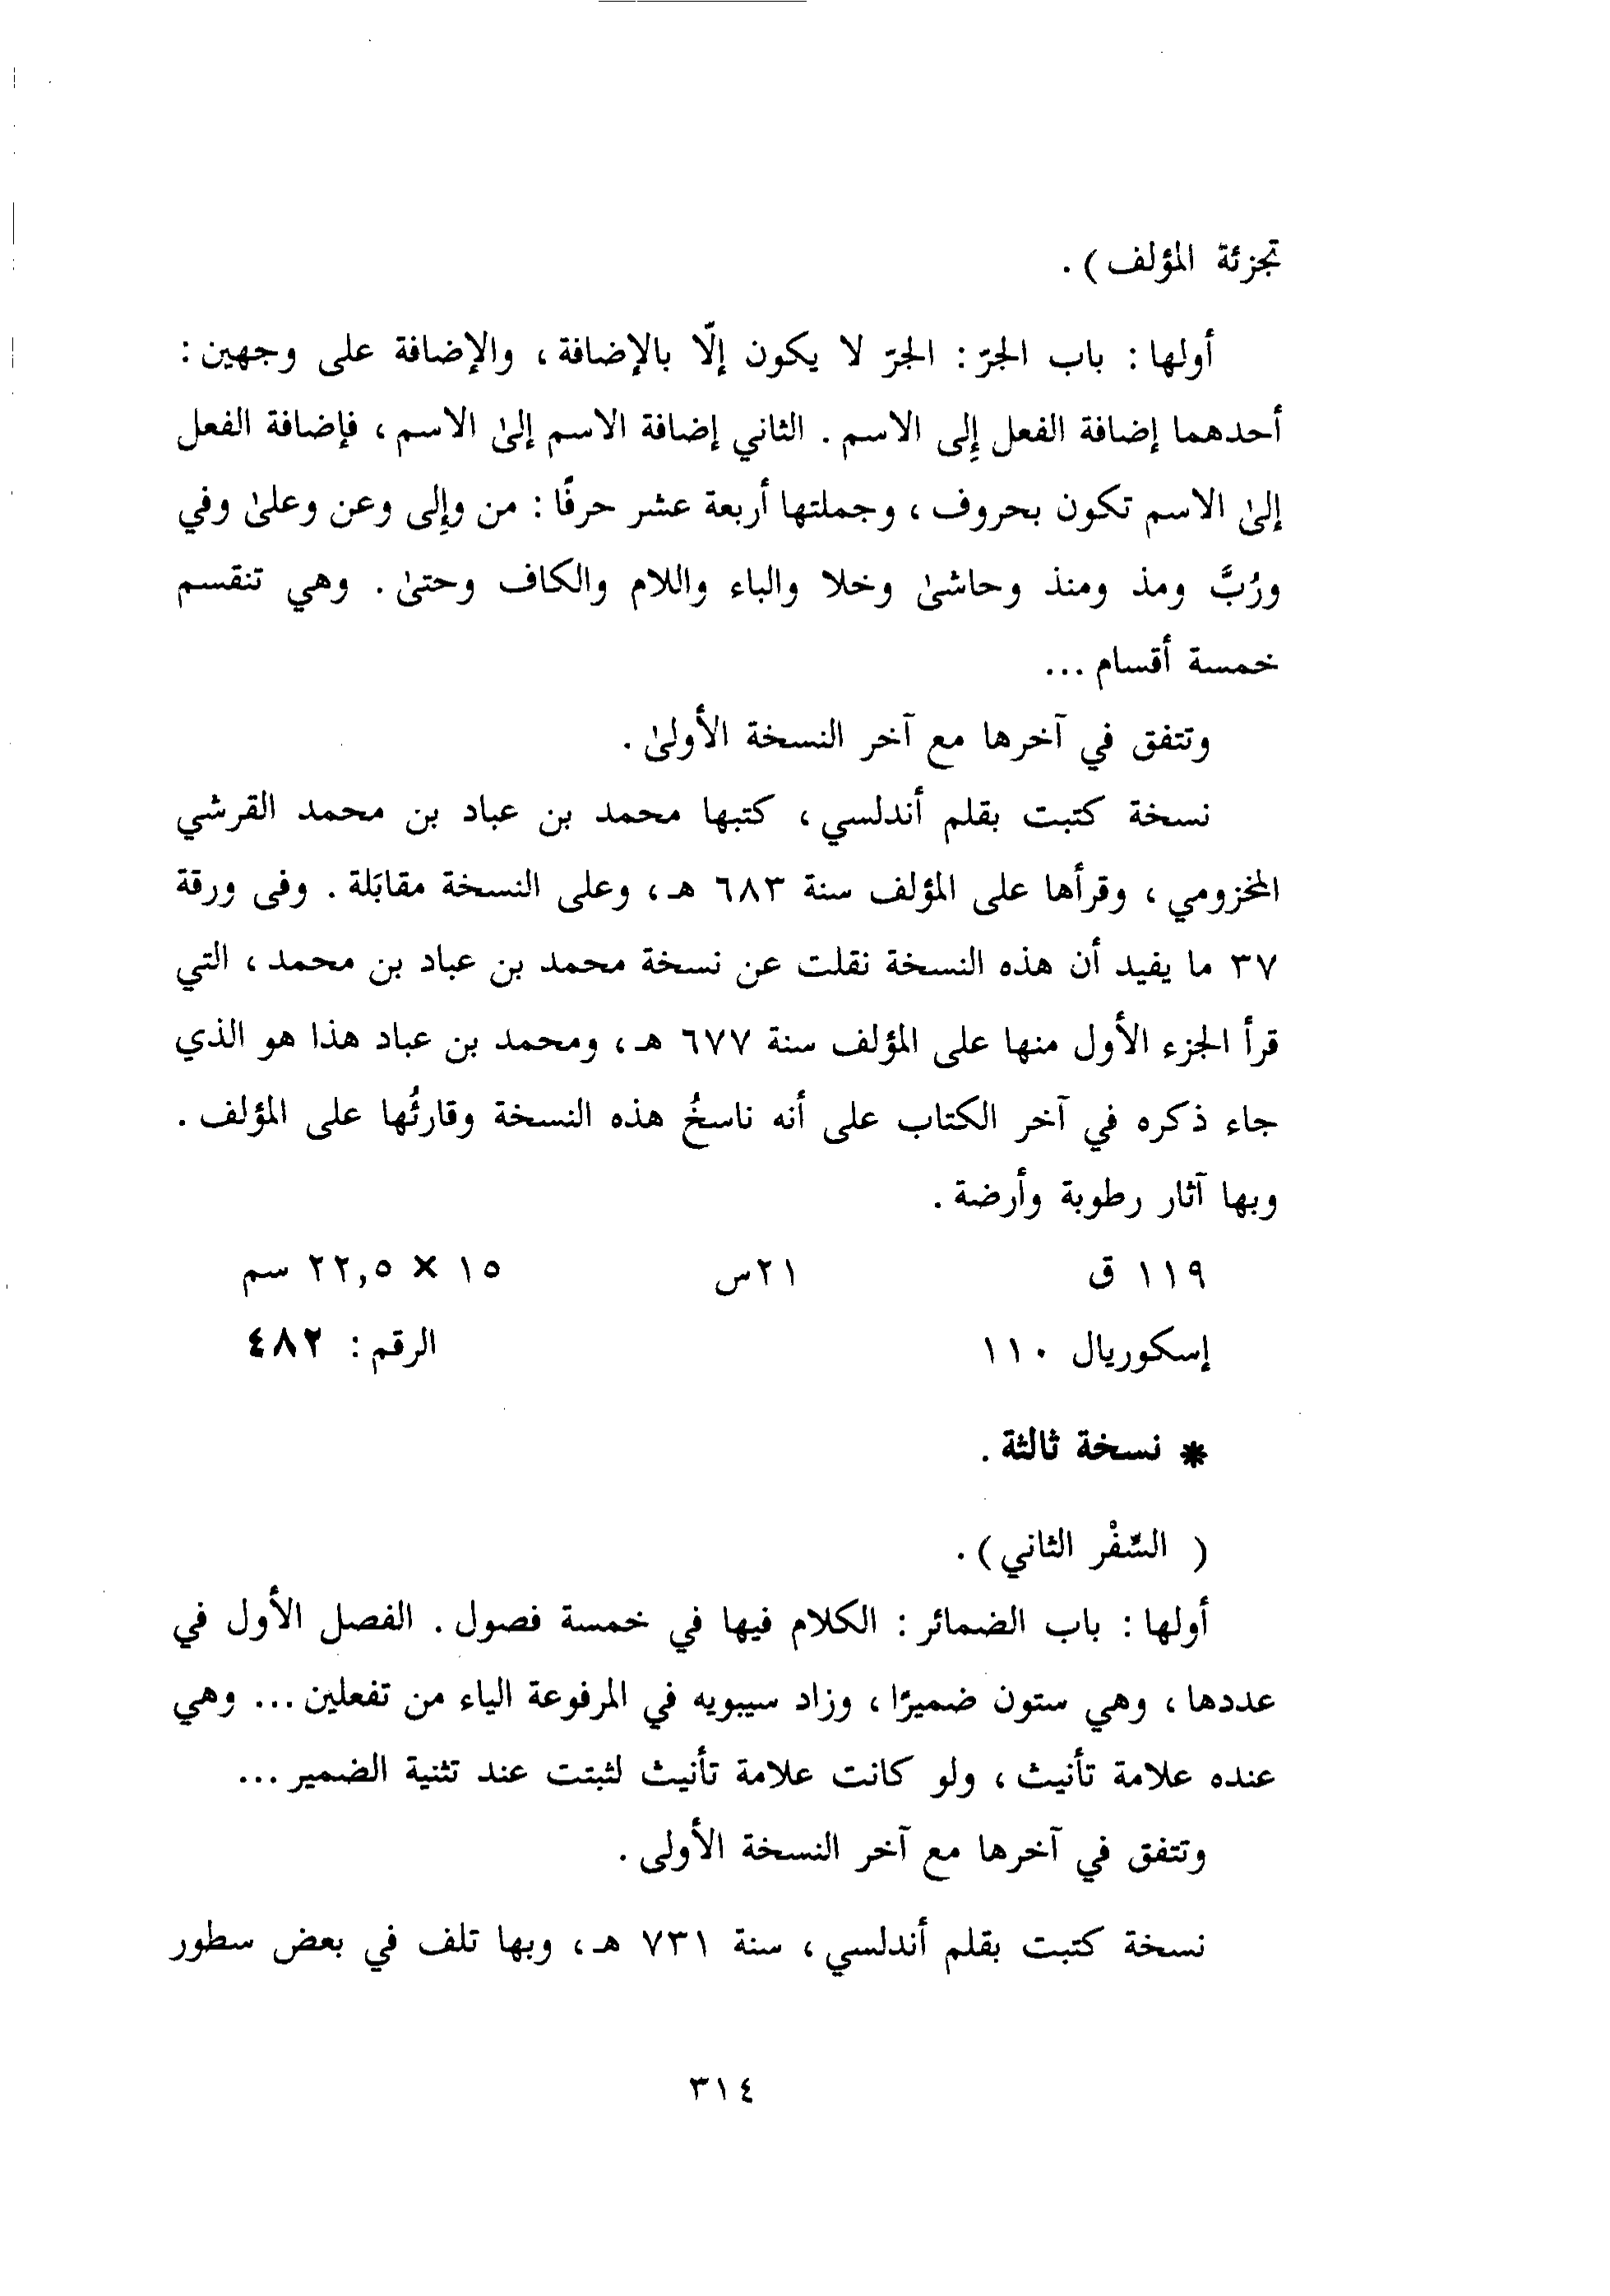 تجزئة المؤلف) .
أولها : باب الجرّ : الجرّ لا يكون إلّا بالإضافة ، والإضافة على وجهين :
أحدهما إضافة الفعل إلى الاسم . الثاني إضافة الاسم إلىٰ الاسم ، فإضافة الفعل
إلىٰ الاسم تكون بحروف ، وجملتها أربعة عشر حرفًا : من وإلى وعن وعلىٰ وفي
ورُبَّ ومذ ومنذ وحاشىٰ وخلا والباء واللام والكاف وحتىٰ . وهي تنقسم
خمسة أقسام ...
وتتفق في آخرها مع آخر النسخة الأولىٰ .
نسخة كتبت بقلم أندلسي ، كتبها محمد بن عباد بن محمد القرشي
المخزومي ، وقرأها على المؤلف سنة ٦٨٣ هـ ، وعلى النسخة مقابَلة . وفى ورقة
٣٧ ما يفيد أن هذه النسخة نقلت عن نسخة محمد بن عباد بن محمد ، التي
قرأ الجزء الأول منها على المؤلف سنة ٦٧٧ هـ ، ومحمد بن عباد هذا هو الذي
جاء ذكره في آخر الكتاب على أنه ناسخُ هذه النسخة وقارئُها على المؤلف .
وبها آثار رطوبة وأرضة .
١١٩ ق ٢١س ١٥ × ٢٢,٥ سم
إسكوريال ١١٠ الرقم : ٤٨٢
* نسخة ثالثة .
( السِّفْر الثاني ) .
أولها : باب الضمائر : الكلام فيها في خمسة فصول . الفصل الأول في
عددها ، وهي ستون ضميرًا ، وزاد سيبويه في المرفوعة الياء من تفعلين ... وهي
عنده علامة تأنيث ، ولو كانت علامة تأنيث لثبتت عند تثنية الضمير ...
وتتفق في آخرها مع آخر النسخة الأولى .
نسخة كتبت بقلم أندلسي ، سنة ٧٣١ هـ ، وبها تلف في بعض سطور
٣١٤